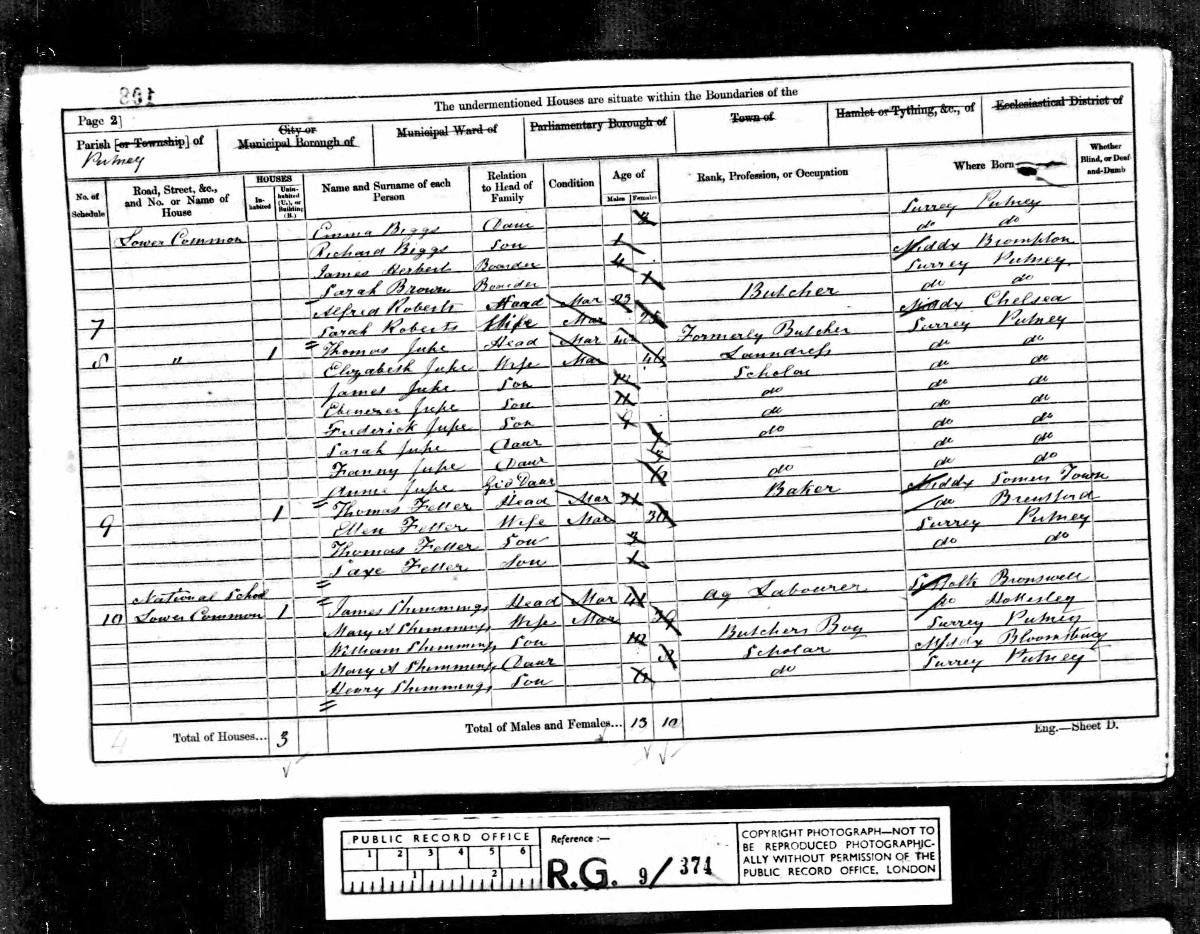 Page 2]
The undermentioned Houses are situate within the Boundaries of the
Parish [or Township] of
Putney
City or Municipal Borough of
Municipal Ward of
Parliamentary Borough of
Town of
Hamlet or Tything, &c., of
Ecclesiastical District of
No. of Schedule
Road, Street, &c., and No. or Name of House
HOUSES
Inhabited
Uninhabited (U.), or Building (B.)
Name and Surname of each Person
Relation to Head of Family
Condition
Age of
Males
Females
Rank, Profession, or Occupation
Where Born
Whether Blind, or Deaf-and-Dumb
Lower Common Emma Biggs Daur Surrey Putney
Richard Biggs Son 1 do do
James Herbert Boarder 4 Middx Brompton
Sarah Brown Boarder 1 Surrey Putney
7 Alfred Roberts Head Mar 23 Butcher do do
Sarah Roberts Wife Mar 25 Middx Chelsea
8 " 1 Thomas Jupe Head Mar Formerly Butcher Surrey Putney
Elizabeth Jupe Wife Mar Laundress do do
James Jupe Son Scholar do do
Ebenezer Jupe Son 11 do do do
Frederick Jupe Son do do do
Sarah Jupe Daur do do do
Fanny Jupe Daur do do
Annie Jupe Daur do do do
9 1 Thomas Felter Head Mar 31 Baker Middx Somers Town
Ellen Felter Wife Mar do Brentford
Thomas Felter Son 3 Surrey Putney
Felter Son do do
National School
10 Lower Common 1 James Shemming Head Mar 41 Ag Labourer Suffolk
Mary A Shemming Wife Mar 39 do Hollesley
William Shemming Son Butchers Boy Surrey Putney
Mary A Shemming Daur Scholar Middx Bloomsbury
Henry Shemming Son do Surrey Putney
4
Total of Houses... 3
Total of Males and Females... 13 10
Eng.—Sheet D.
PUBLIC RECORD OFFICE
1 2 3 4 5 6
1 2
Reference :—
R.G. 9/374
COPYRIGHT PHOTOGRAPH—NOT TO
BE REPRODUCED PHOTOGRAPHIC-
ALLY WITHOUT PERMISSION OF THE
PUBLIC RECORD OFFICE, LONDON